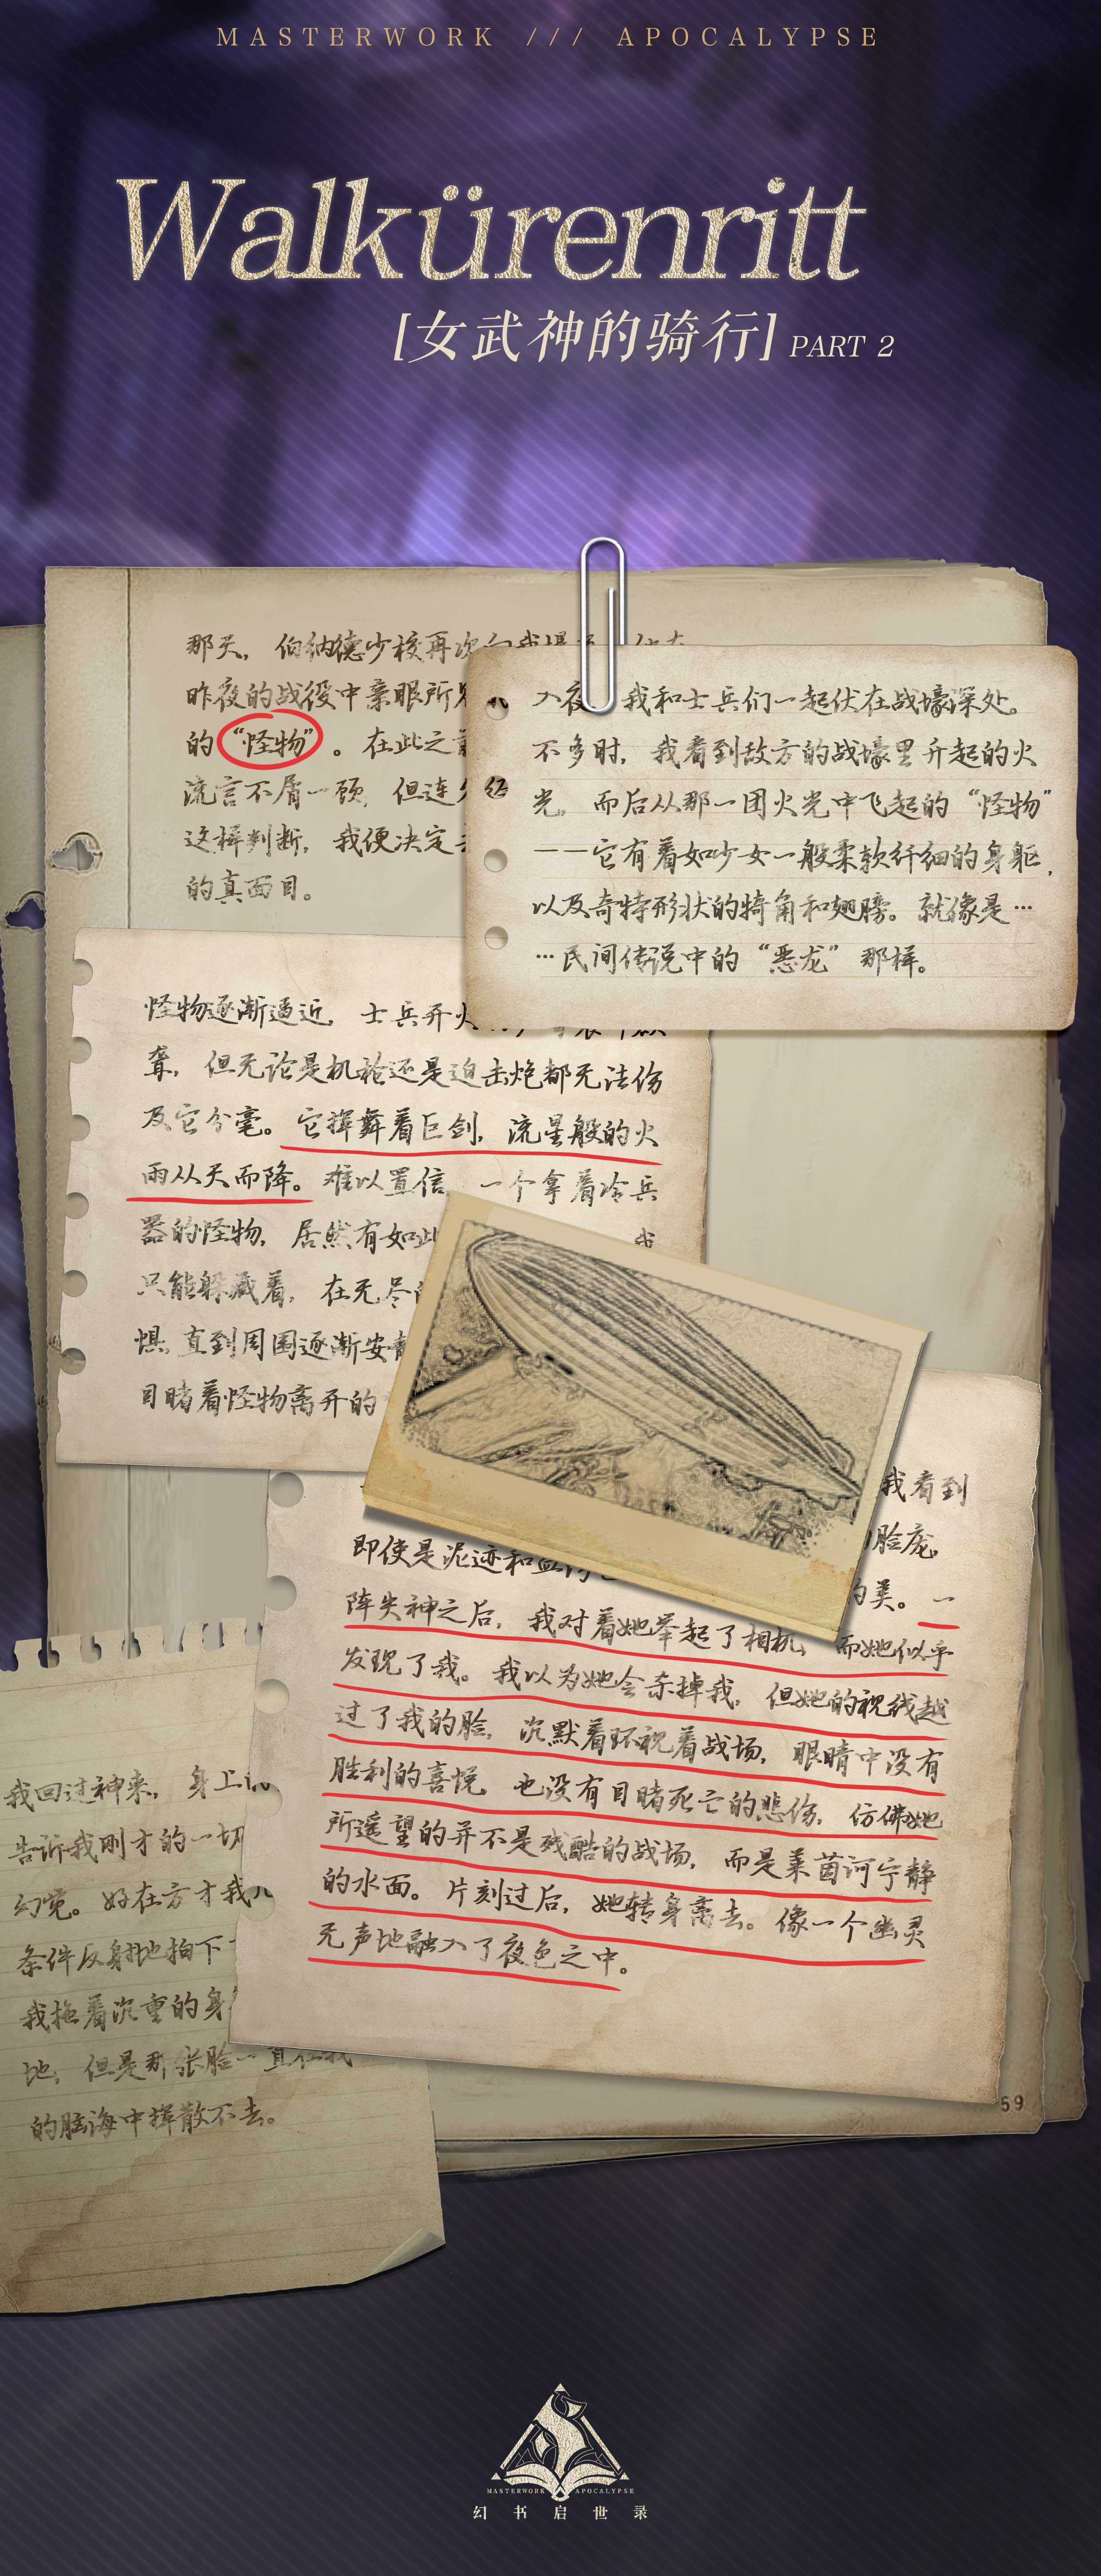 MASTERWORK /// APOCALYPSE
Walkürenritt
[女武神的骑行] PART 2
那天，伯纳德少校再次向我
昨夜的战役中亲眼所见
的“怪物”。在此之前
流言不屑一顾，但连
这样判断，我便决定
的真面目。
入夜 我和士兵们一起伏在战壕深处。
不多时，我看到敌方的战壕里升起的火
光，而后从那一团火光中飞起的“怪物”
——它有着如少女一般柔软纤细的身躯，
以及奇特形状的犄角和翅膀。就像是…
…民间传说中的“恶龙”那样。
怪物逐渐逼近，士兵开火
聋，但无论是机枪还是迫击炮都无法伤
及它分毫。它挥舞着巨剑，流星般的火
雨从天而降。难以置信，一个拿着冷兵
器的怪物，居然有如此 我
只能躲藏着，在无尽的
惧，直到周围逐渐安静
目睹着怪物离开的
我看到
即使是泥迹和血污 脸庞，
的美。一
阵失神之后，我对着她举起了相机，而她似乎
发现了我。我以为她会杀掉我，但她的视线越
过了我的脸，沉默着环视着战场，眼睛中没有
胜利的喜悦，也没有目睹死亡的悲伤，仿佛她
所遥望的并不是残酷的战场，而是莱茵河宁静
的水面。片刻过后，她转身离去。像一个幽灵
无声地融入了夜色之中。
我回过神来，身上
告诉我刚才的一切
幻觉。好在方才我
条件反射地拍下
我拖着沉重的身
地，但是那张脸一直在我
的脑海中挥散不去。
59
MASTERWORK APOCALYPSE
幻书启世录